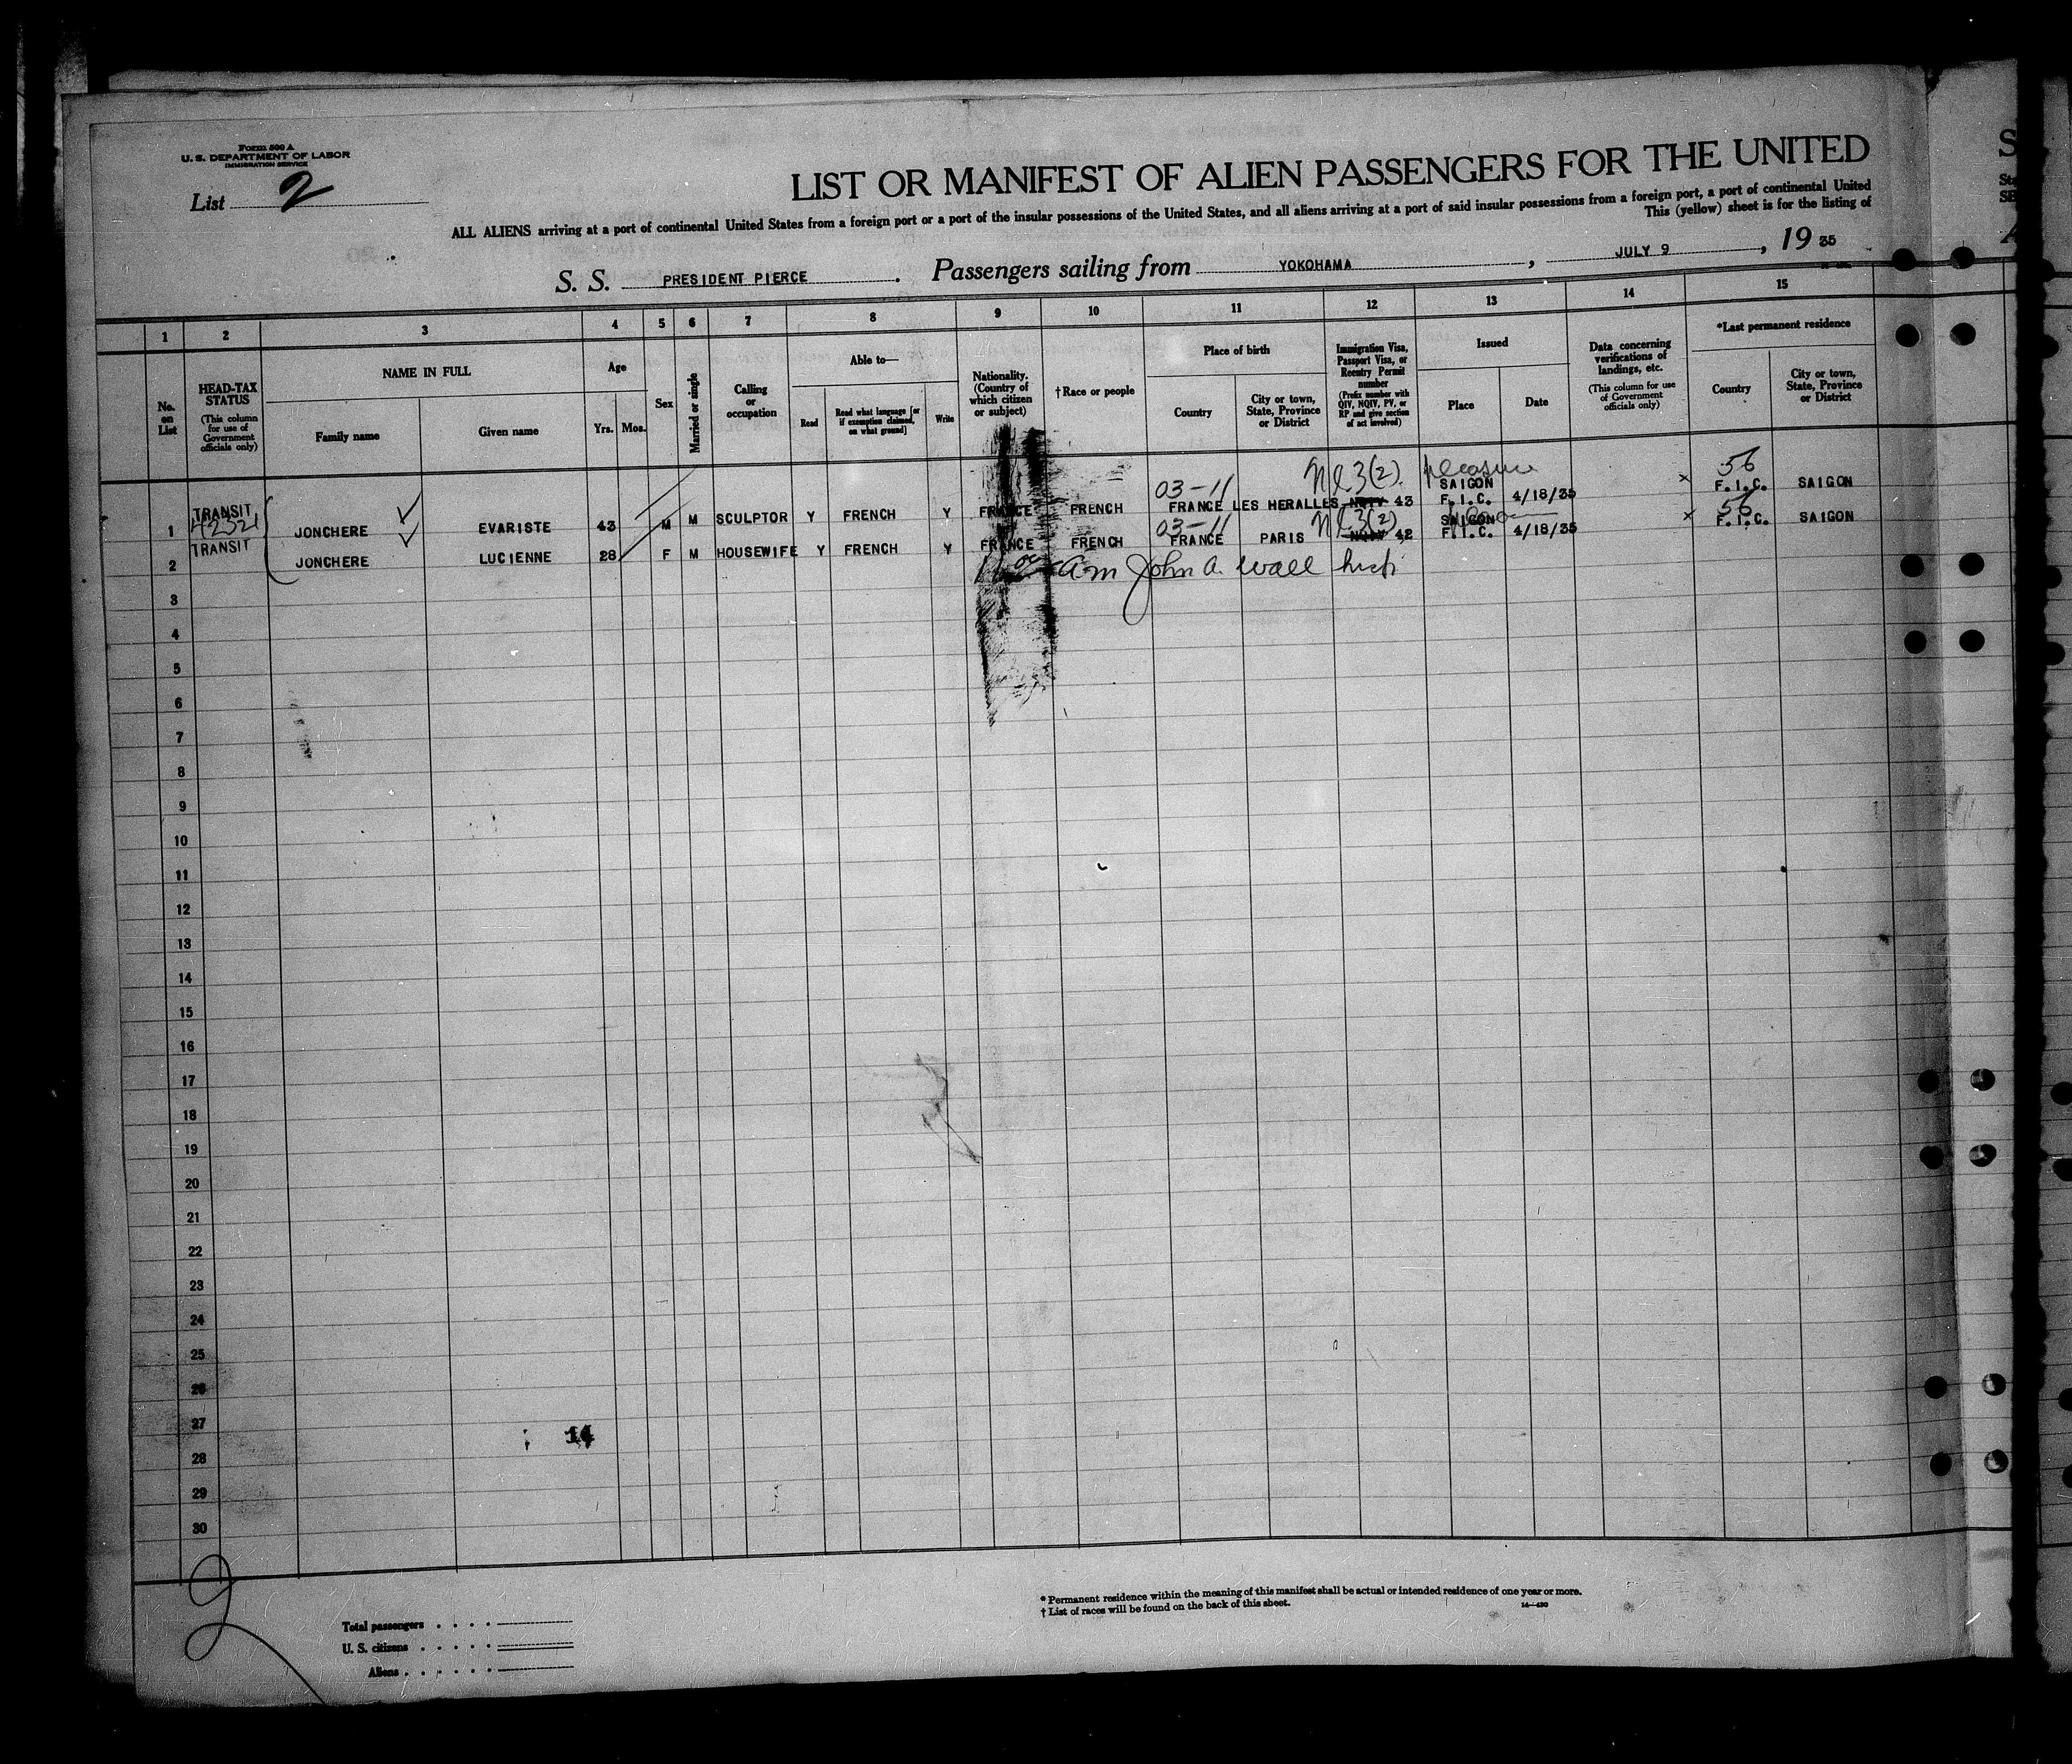 Form 500 A
U. S. DEPARTMENT OF LABOR
IMMIGRATION SERVICE
List 2
LIST OR MANIFEST OF ALIEN PASSENGERS FOR THE UNITED
ALL ALIENS arriving at a port of continental United States from a foreign port or a port of the insular possessions of the United States, and all aliens arriving at a port of said insular possessions from a foreign port, a port of continental United
This (yellow) sheet is for the listing of
S. S. PRESIDENT PIERCE. Passengers sailing from YOKOHAMA, JULY 9, 19 35
1 2 3 4 5 6 7 8 9 10 11 12 13 14 15
No. on List
HEAD-TAX STATUS (This column for use of Government officials only)
NAME IN FULL
Family name
Given name
Age
Yrs. Mos.
Sex
Married or single
Calling or occupation
Able to—
Read
Read what language [or if exemption claimed, on what ground]
Write
Nationality. (Country of which citizen or subject)
†Race or people
Place of birth
Country
City or town, State, Province or District
Immigration Visa, Passport Visa, or Reentry Permit number (Prefix number with QIV, NQIV, PV, or RP and give section of act involved)
Issued
Place
Date
Data concerning verifications of landings, etc. (This column for use of Government officials only)
*Last permanent residence
Country
City or town, State, Province or District
03-11 3(2) pleasure 56
1 TRANSIT JONCHERE EVARISTE 43 M M SCULPTOR Y FRENCH Y FRANCE FRENCH FRANCE LES HERALLES NQIV 43 SAIGON F.I.C. 4/18/35 x F.I.C. SAIGON
03-11 3(2) 56
2 TRANSIT JONCHERE LUCIENNE 28 F M HOUSEWIFE Y FRENCH Y FRANCE FRENCH FRANCE PARIS NQIV 42 SAIGON F.I.C. 4/18/35 x F.I.C. SAIGON
am John A. Wall
3
4
5
6
7
8
9
10
11
12
13
14
15
16
17
18
19
20
21
22
23
24
25
26
27
14
28
29
30
2
Total passengers
U. S. citizens
Aliens
* Permanent residence within the meaning of this manifest shall be actual or intended residence of one year or more.
† List of races will be found on the back of this sheet.
14—430